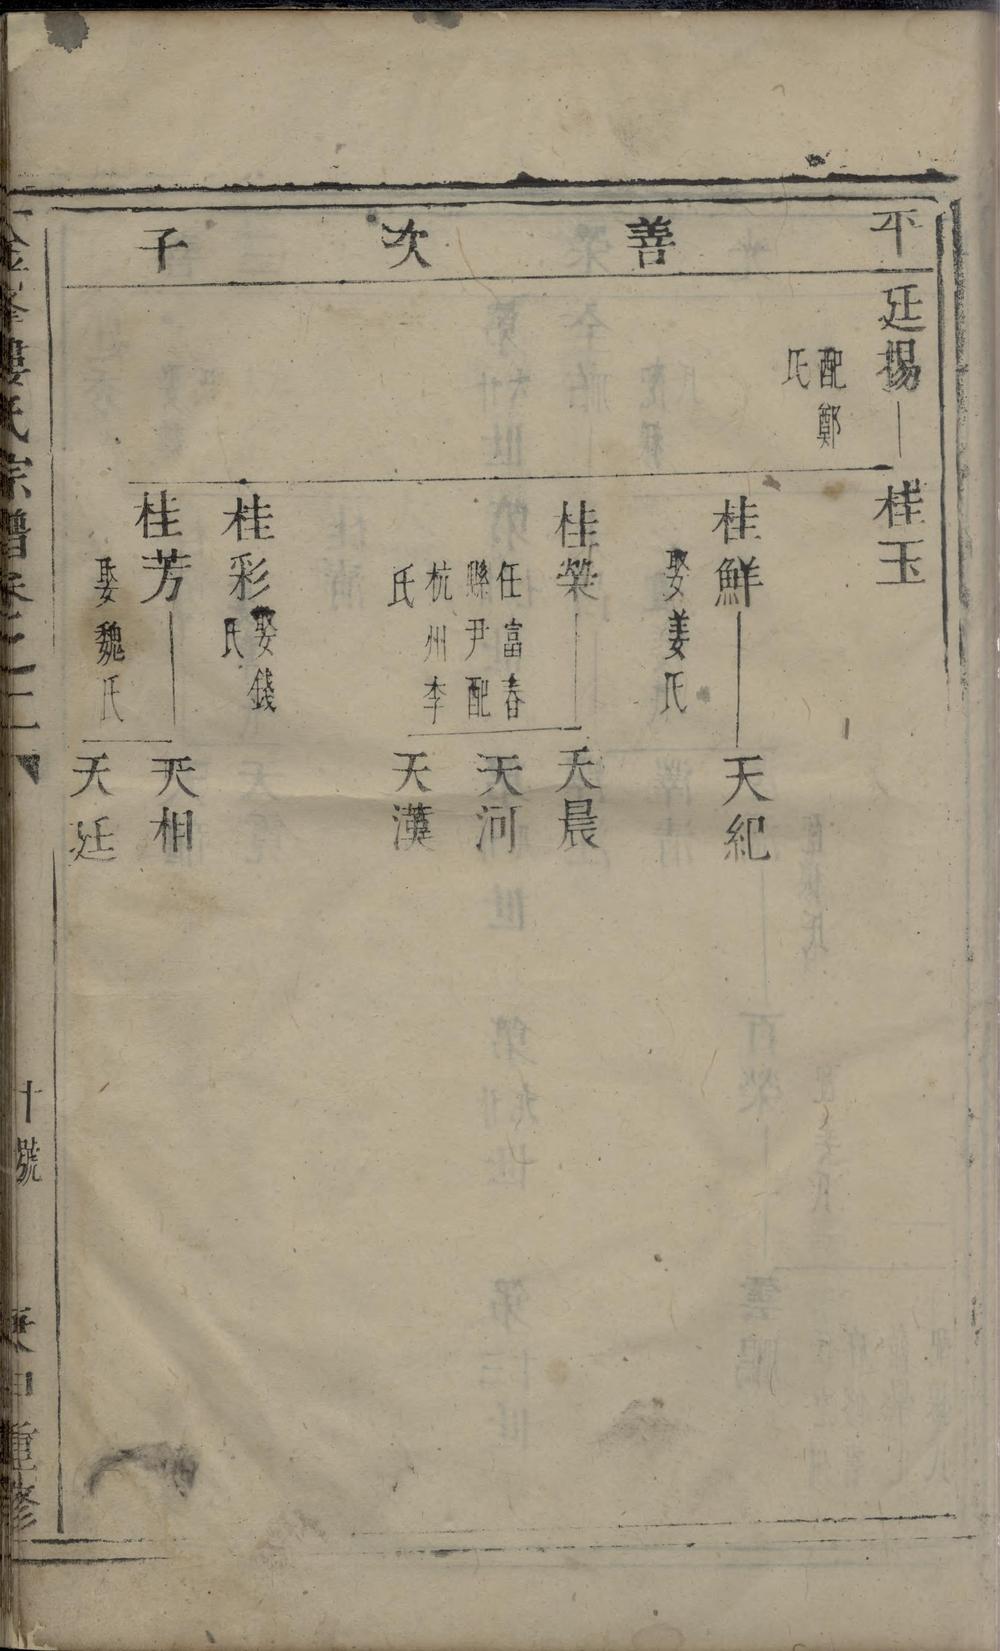 平善次子
廷楊
配鄭
氏
桂玉
桂鮮
娶姜氏
天紀
桂榮
任富春
縣尹配
杭州李
氏
天晨
天河
天漢
桂彩
娶錢
氏
桂芳
娶魏氏
天相
天廷
婁氏宗譜卷之二
十號
庚申重修